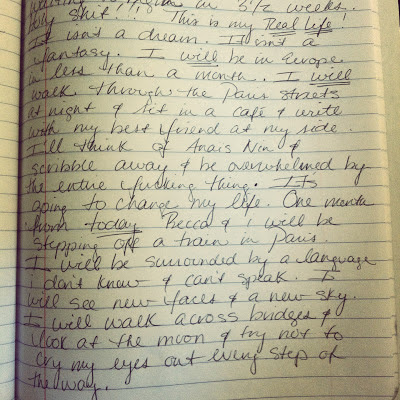 in 3½ weeks.
holy shit!!! This is my Real life!
It isn't a dream. It isn't a
fantasy. I will be in Europe
in less than a month. I will
walk through the Paris streets
at night & sit in a café & write
with my best friend at my side.
I'll think of Anais Nin &
scribble away & be overwhelmed by
the entire fucking thing. It's
going to change my life. One month
from today Becca & i will be
stepping off a train in Paris.
I will be surrounded by a language
i don't know & can't speak. I
will see new faces & a new sky.
I will walk across bridges &
look at the moon & try not to
cry my eyes out every step of
the way.